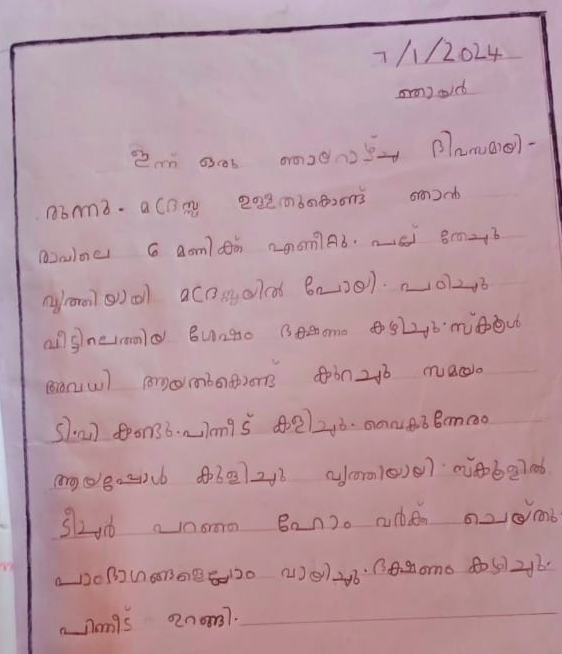 7/1/2024
ഞായർ
ഇന്ന് ഒരു ഞായറാഴ്ച ദിവസമായി-
രുന്നു. മദ്രസ്സ ഉള്ളതുകൊണ്ട് ഞാൻ
രാവിലെ 6 മണിക്ക് എണീറ്റു. പല്ല് തേച്ചു
വൃത്തിയായി മദ്രസ്സയിൽ പോയി. പഠിച്ചു
വീട്ടിലെത്തിയ ശേഷം ഭക്ഷണം കഴിച്ചു. സ്കൂൾ
അവധി ആയതുകൊണ്ട് കുറച്ചു സമയം
ടി.വി കണ്ടു. പിന്നീട് കളിച്ചു. വൈകുന്നേരം
ആയപ്പോൾ കുളിച്ചു വൃത്തിയായി. സ്കൂളിൽ
ടീച്ചർ പറഞ്ഞ ഹോം വർക്ക് ചെയ്തു
പാഠഭാഗങ്ങളെല്ലാം വായിച്ചു. ഭക്ഷണം കഴിച്ചു.
പിന്നീട് ഉറങ്ങി.